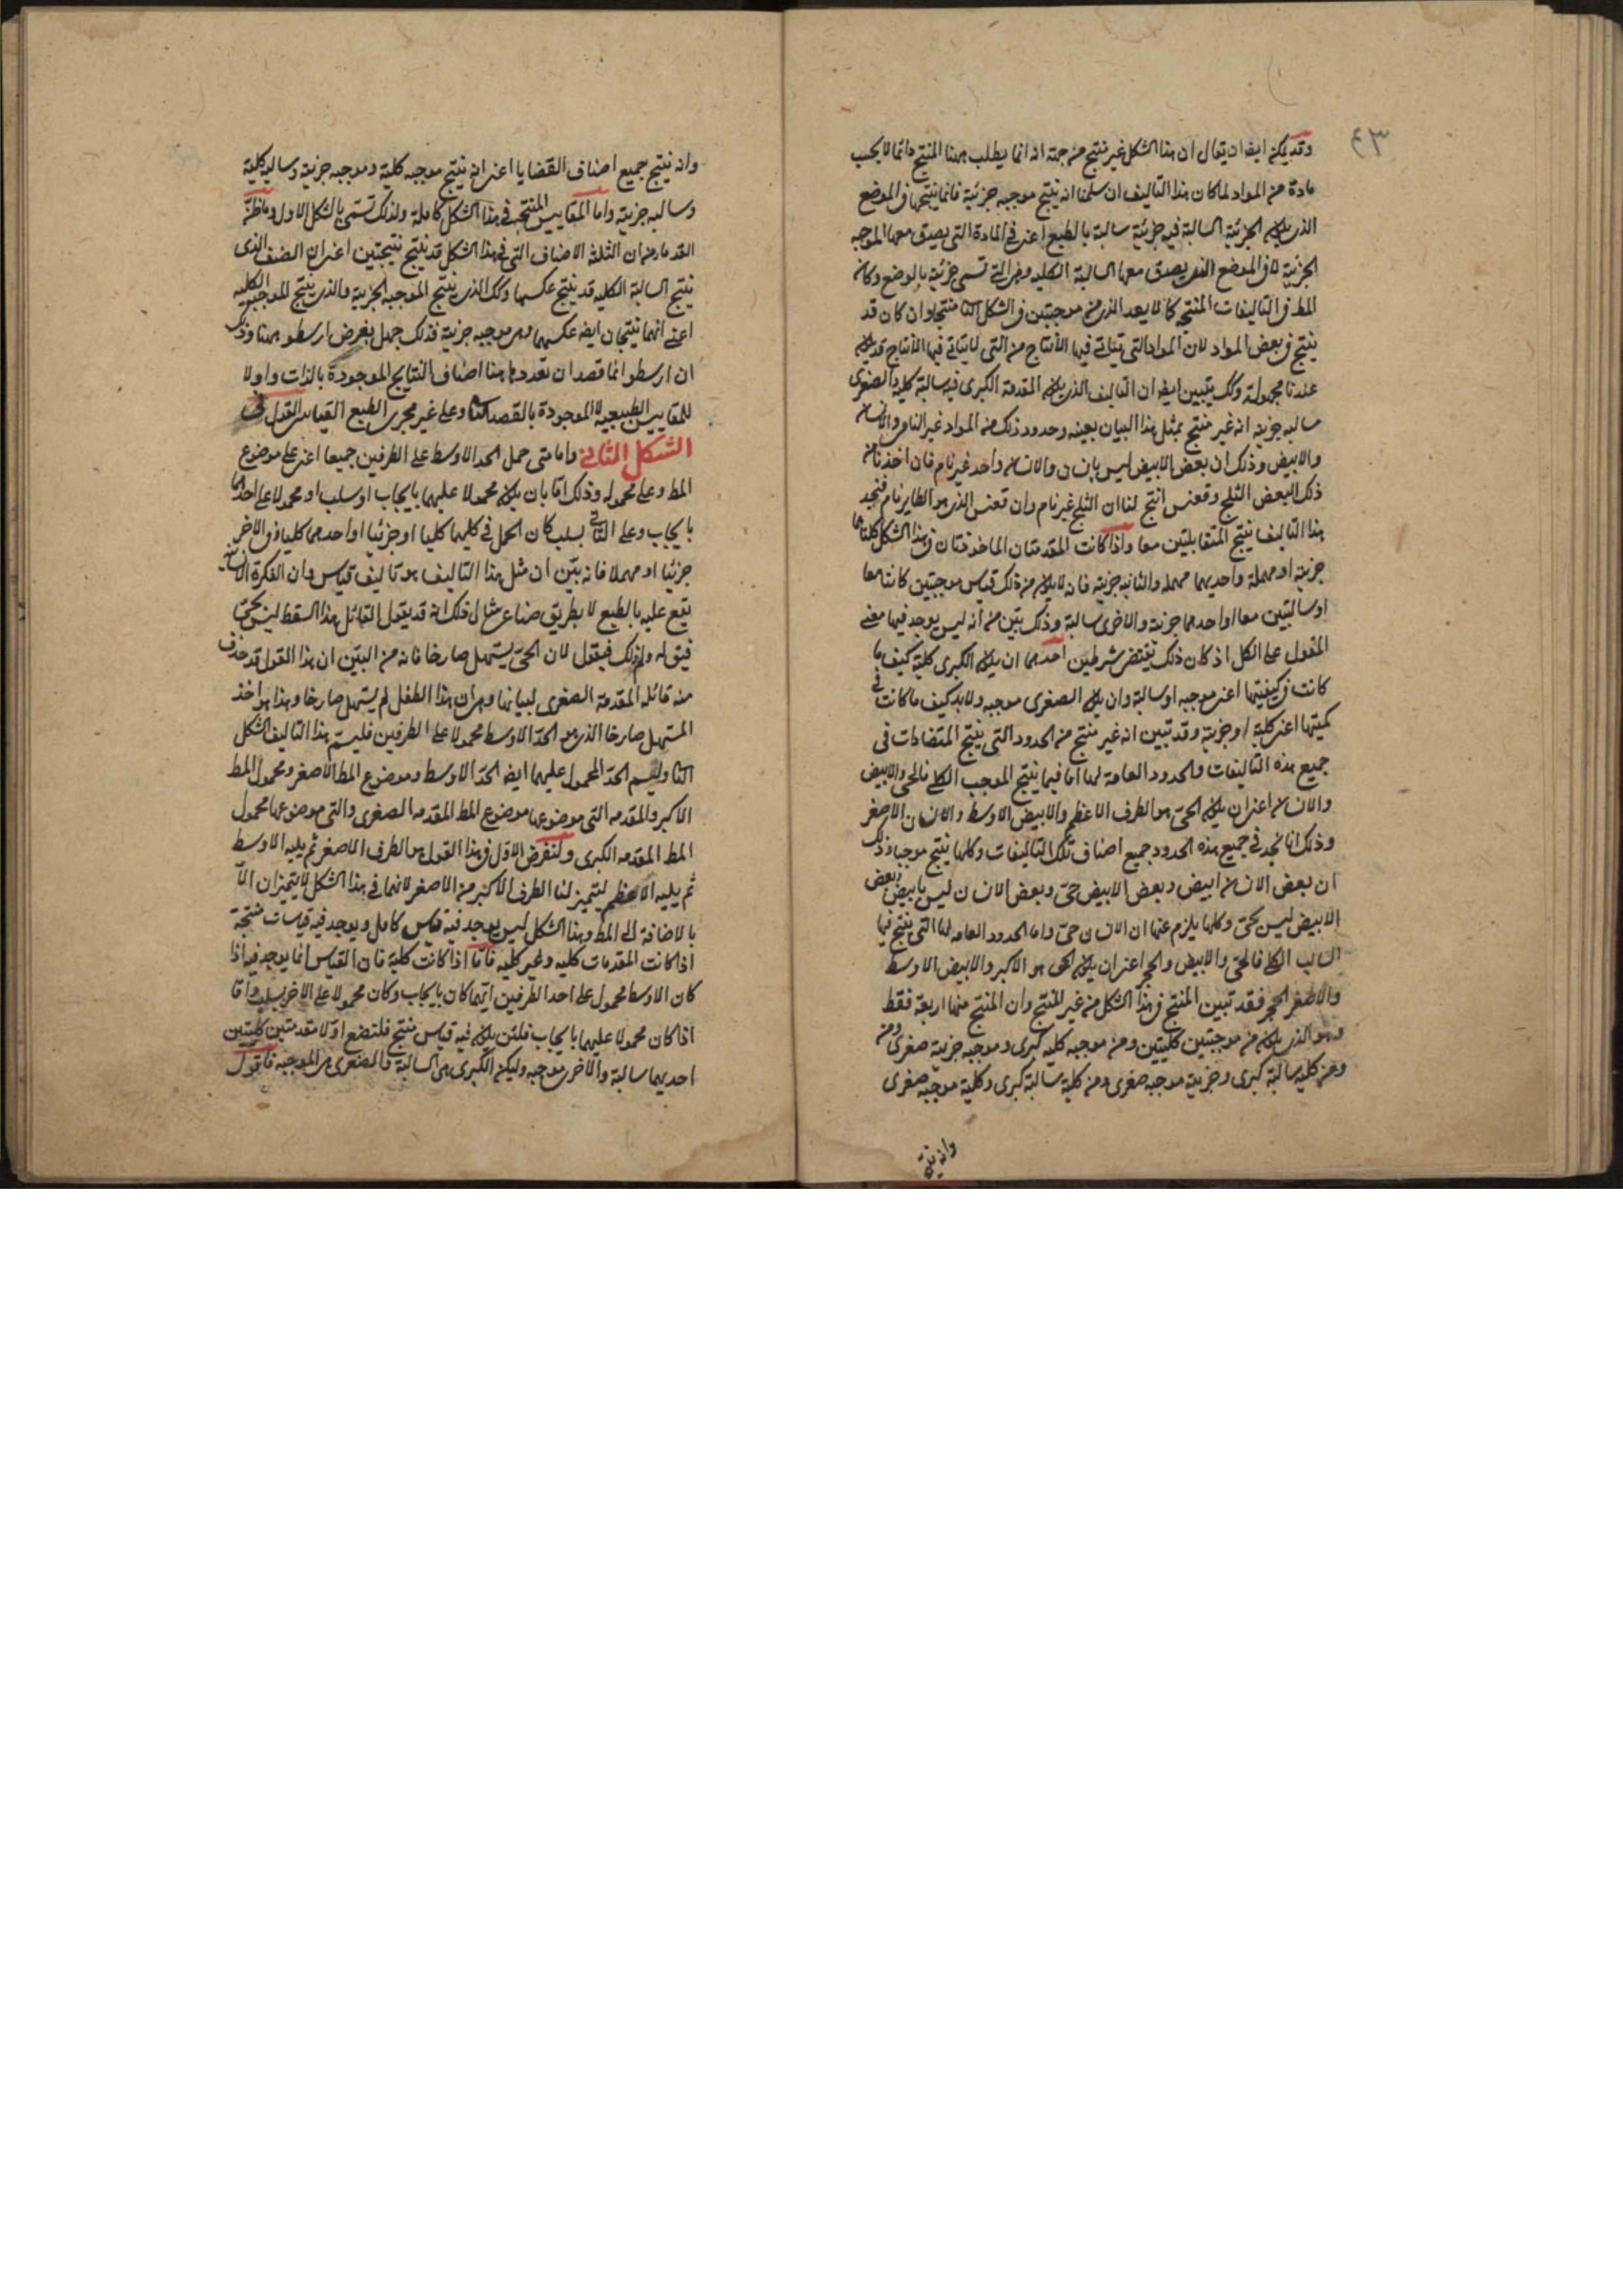 ٤٣
وقد يمكن ايضا ان يقال ان هذا الشكل غير منتج من جهة انه انما يطلب ههنا المنتج دائما لا بحسب
مادة من المواد لما كان هذا التاليف ان سلمنا انه ينتج موجبه جزئية فانما ينتجها في الموضع
الذى يكون الجزئية السالبة فيه جزئية سالبة بالطبع اعنى فى المادة التى يصدق معها الموجبه
الجزئية لا فى الموضع الذى يصدق معها السالبة الكليه وهى التى تسمى جزئية بالوضع وكان
المط فى التاليفات المنتجه كما لا يعد الذى من موجبتين فى الشكل الثا منتجا وان كان قد
ينتج فى بعض المواد لان المواد التى يتاتى فيها الأنتاج من التى لا يتاتى فيها الأنتاج قد يكون
عندنا مجهولة وكك يتبين ايضا ان التاليف الذى يكون المقدمة الكبرى فيه سالبة كليه والصغرى
سالبه جزئية انه غير منتج بمثل هذا البيان بعينه وحدود ذلك من المواد غير النامى والانسان
والابيض وذلك ان بعض الابيض ليس بانسان والانسان واحد غير نام فان اخذنا من
ذلك البعض الثلج وققنس انتج لنا ان الثلج غير نام وان ققنس الذى هو الطاير نام فنجد
هذا التاليف ينتج المتقابلتين معا واذا كانت المقدمتان الماخوذتان فى هذا الشكل كلتاهما
جزئية او مهملة واحديهما مهمله والثانيه جزئية فانه لا يكون من ذلك قياس موجبتين كانتا معا
او سالبتين معا او احدهما جزئية والاخرى سالبة وذلك بيّن من انه ليس يوجد فيها معنى
المقول على الكل اذ كان ذلك يقتضى شرطين احدهما ان يكون الكبرى كلية كيف ما
كانت فى كيفيتها اعنى موجبه او سالبة وان يكون الصغرى موجبه ولا بد كيف ما كانت فى
كميتها اعنى كلية او جزئية وقد تبين انه غير منتج من الحدود التى ينتج المتضادات فى
جميع هذه التاليفات والحدود العامة لها اما فيما ينتج الموجب الكلى فالحى والابيض
والانسان اعنى ان يكون الحى هو الطرف الاعظم والابيض الاوسط والانسان الاصغر
وذلك انا نجد فى جميع هذه الحدود جميع اصناف تلك التاليفات وكلها ينتج موجبا وذلك
ان بعض الانسان ابيض وبعض الابيض حىّ وبعض الانسان ليس بابيض وبعض
الابيض ليس بحىّ وكلها يلزم عنها ان الانسان حىّ واما الحدود العامه لها التى ينتج فيها
السالب الكلى فالحىّ والابيض والحجر اعنى ان يكون الحى هو الاكبر والابيض الاوسط
والاصغر الحجر فقد تبين المنتج فى هذا الشكل من غير المنتج وان المنتج منها اربعة فقط
وهو الذى يكون من موجبتين كليتين ومن موجبه كليه كبرى وموجبه جزئية صغرى ومن
ومن كليه سالبة كبرى وجزئية موجبه صغرى ومن كلية سالبة كبرى وكلية موجبه صغرى
وانه ينتج
وانه ينتج جميع اصناف القضايا اعنى انه ينتج موجبه كلية وموجبه جزئية وسالبه كلية
وسالبه جزئية واما المقاييس المنتجه فى هذا الشكل كاملة ولذلك تسمى بالشكل الاول وما ظنّه
القدماء من ان الثلثة الاصناف التى فى هذا الشكل قد ينتج نتيجتين اعنى ان الصنف الذى
ينتج السالبة الكليه قد ينتج عكسها وكك الذى ينتج الموجبه الجزئية والذى ينتج الموجبه الكليه
اعنى انهما ينتجان ايضا عكسهما وهى موجبه جزئية فذلك جهل بغرض ارسطو ههنا وذلك
ان ارسطو انما قصد ان تعدد هاهنا اصناف النتايج الموجودة بالذات واولا
للمقاييس الطبيعيه لا الموجودة بالقصد الثا وعلى غير مجرى الطبع القياس القول فى
الشكل الثانى وامامتى حمل الحد الاوسط على الطرفين جميعا اعنى على موضوع
المط وعلى محموله وذلك اما بان يكون محمولا عليهما بايجاب او سلب او محمولا على احدهما
بايجاب وعلى الثانى بسلب كان الحمل فى كليهما كليا او جزئيا او احدهما كليا وفى الاخر
جزئيا او مهملا فانه بيّن ان مثل هذا التاليف هو تاليف قياس وان الفكرة الانسانية
يقع عليه بالطبع لا بطريق صناعى مثال ذلك انه قد يقول القائل هذا السقط ليس بحىّ
فيق له ولم ذلك فيقول لان الحىّ يستهل صارخا فانه من البيّن ان هذا القول قد حذف
منه قائله المقدمة الصغرى لبيانها وهى ان هذا الطفل لم يستهل صارخا وهذا هو اخذ
المستهل صارخا الذى هو الحدّ الاوسط محمولا على الطرفين فليسم هذا التاليف الشكل
الثا وليسم الحدّ المحمول عليهما ايضا الحدّ الاوسط وموضوع المط الاصغر ومحمول المط
الاكبر والمقدمه التى موضوعها موضوع المط المقدمه الصغرى والتى موضوعها محمول
المط المقدمه الكبرى ولنفرض الاوّل فى هذا القول هو الطرف الاصغر ثم يليه الاوسط
ثم يليه الاعظم ليتميز لنا الطرف الاكبر من الاصغر لانهما فى هذا الشكل لا يتميزان الّا
بالاضافة الى المط وهذا الشكل ليس يوجد فيه قياس كامل ويوجد فيه قياسات منتجة
اذا كانت المقدمات كليه وغير كليه فامّا اذا كانت كلية فان القياس انما يوجد فيه اذا
كان الاوسط محمول على احد الطرفين ايّهما كان بايجاب وكان محمولا على الاخر بسلب وامّا
اذا كان محمولا عليهما بايجاب فلئن يكون فيه قياس منتج فلتضع اوّلا مقدمتين كليتين
احديهما سالبة والاخرى موجبه وليكن الكبرى هى السالبة والصغرى هى الموجبه فاقول